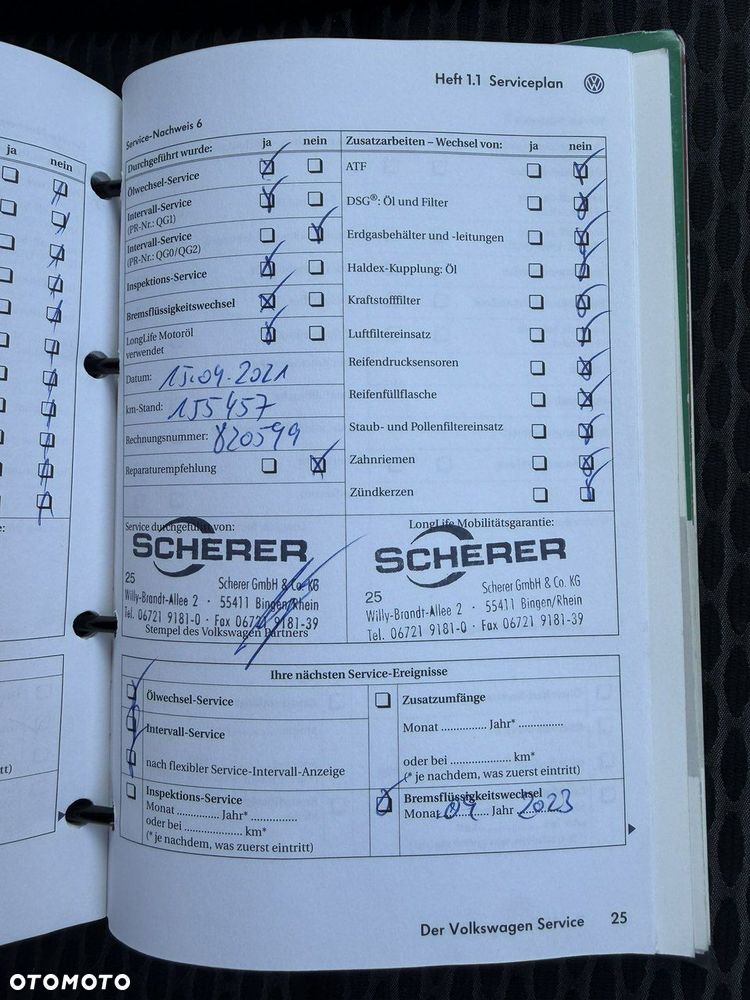 Heft 1.1 Serviceplan
ja nein
Service-Nachweis 6
Durchgeführt wurde: ja nein
Ölwechsel-Service
Intervall-Service
(PR-Nr.: QG1)
Intervall-Service
(PR-Nr.: QG0/QG2)
Inspektions-Service
Bremsflüssigkeitswechsel
LongLife Motoröl
verwendet
Datum: 15.04.2021
km-Stand: 155457
Rechnungsnummer: 820599
Reparaturempfehlung
Zusatzarbeiten – Wechsel von: ja nein
ATF
DSG®: Öl und Filter
Erdgasbehälter und -leitungen
Haldex-Kupplung: Öl
Kraftstofffilter
Luftfiltereinsatz
Reifendrucksensoren
Reifenfüllflasche
Staub- und Pollenfiltereinsatz
Zahnriemen
Zündkerzen
Service durchgeführt von:
SCHERER
25 Scherer GmbH & Co. KG
Willy-Brandt-Allee 2 · 55411 Bingen/Rhein
Tel. 06721 9181-0 · Fax 06721 9181-39
Stempel des Volkswagen Partners
LongLife Mobilitätsgarantie:
SCHERER
25 Scherer GmbH & Co. KG
Willy-Brandt-Allee 2 · 55411 Bingen/Rhein
Tel. 06721 9181-0 · Fax 06721 9181-39
Ihre nächsten Service-Ereignisse
Ölwechsel-Service
Intervall-Service
nach flexibler Service-Intervall-Anzeige
Inspektions-Service
Monat ............. Jahr* ..............
oder bei .................. km*
(* je nachdem, was zuerst eintritt)
Zusatzumfänge
Monat ............. Jahr* ..............
oder bei .................. km*
(* je nachdem, was zuerst eintritt)
Bremsflüssigkeitswechsel
Monat 04 Jahr 2023
tt)
Der Volkswagen Service 25
OTOMOTO